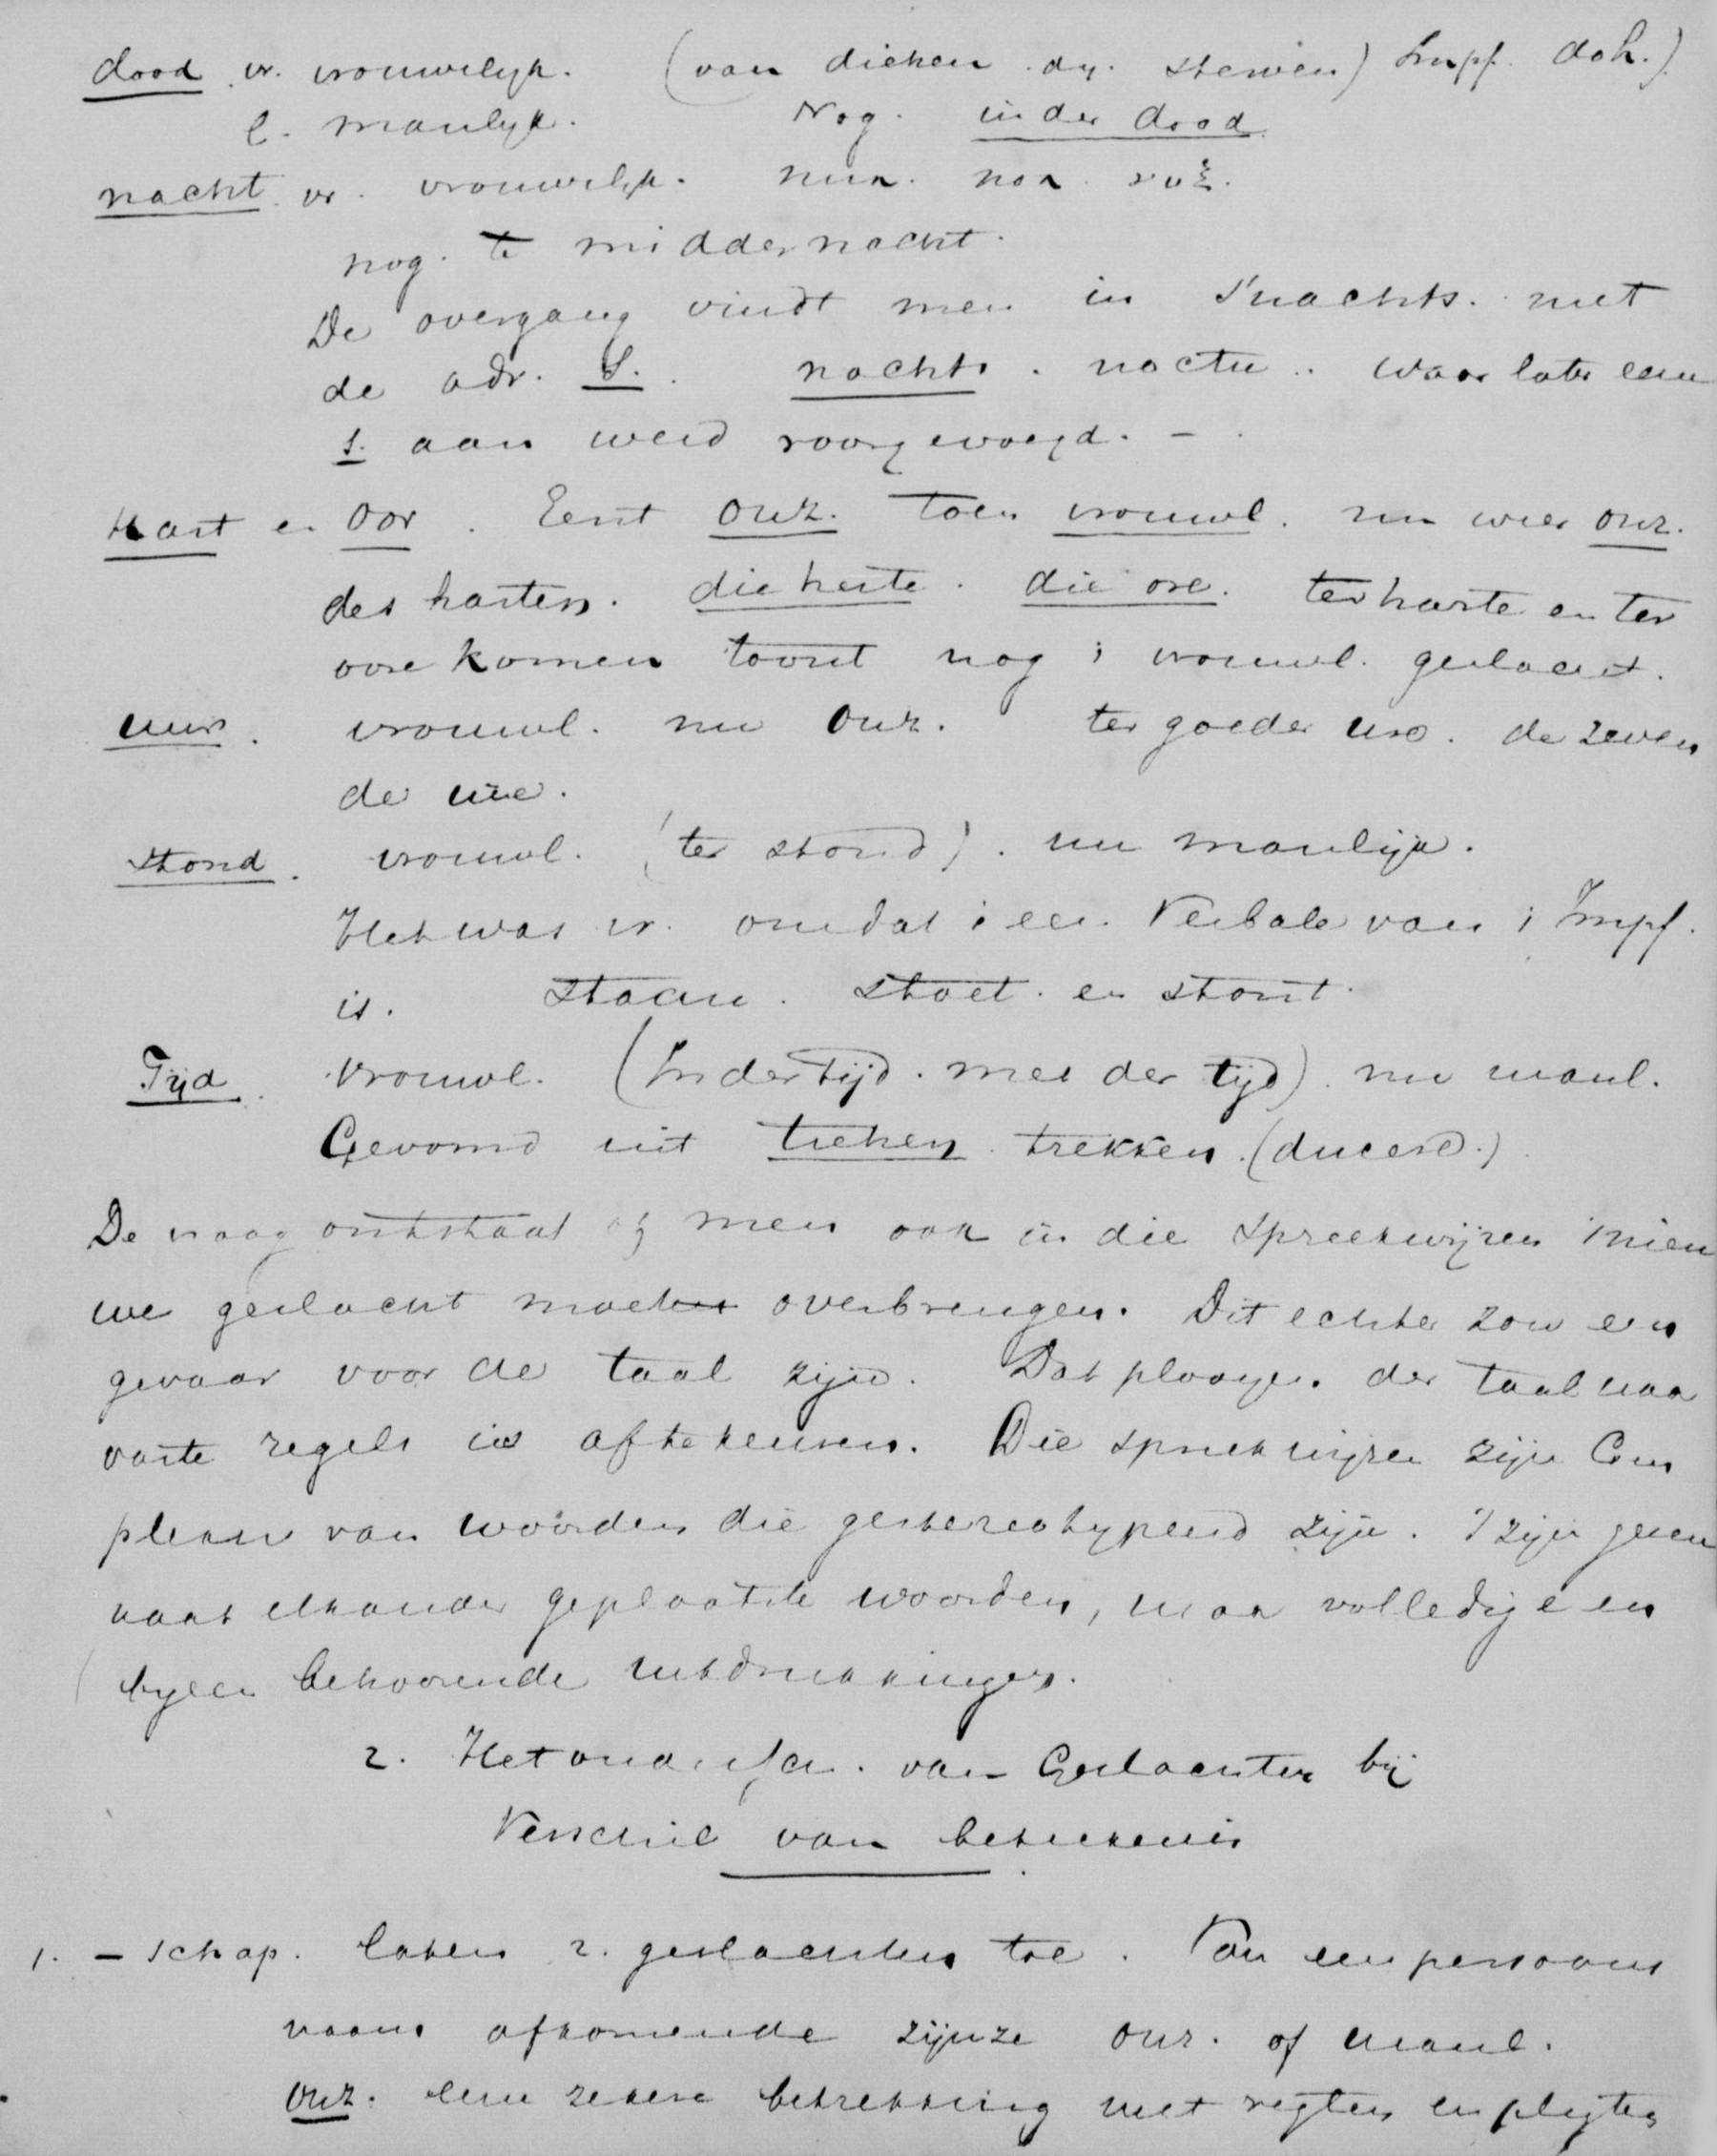 dood vr. vrouwelijk. (van diehen. dy. sterven) Impf. doh.)
l. manlijk. Nog. in der dood
nacht vr. vrouwelijk. nun. νυξ.
nog. te middernacht.
De overgang vindt men in s'nachts. met
de adv. S. nachts. noctu.. waar later een
s. aan werd voorgevoegd. -
Hart en Oor. Eerst Onz. toen vrouwl. nu weer onz.
des harten. die herte. die ore. ter harte en ter
oore komen toont nog 't vrouwl. geslacht.
uur. vrouwl. nu Onz. ter goeder ure. de zeven
de ure.
stond. vrouwl. (ter stond). nu manlijk.
Het was vr. omdat 't een Verbale van 't Impf.
is. staan. stoet. en stont.
Tijd. Vrouwl. (Indertijd. met der tijd) nu manl.
Gevormd uit tiehen trekken. (ducere.)
De vraag ontstaat of men ook in die spreekwijzen 't nieu
we geslacht moet overbrengen. Dit echter zou een
gevaar voor de taal zijn. Dat plooyen der taal naar
vaste regels is af te keuren. Die spreekwijzen zijn Com
plexen van woorden die gestereotypeerd zijn. 't zijn geen
naast elkander geplaatste woorden, maar volledige en
byeen behoorende uitdrukkingen.
2. Het ondersch. van Geslachten bij
Verschil van beteekenis
1. - schap. laten 2. geslachten toe. Van een persoons
naam afkomende zijn ze onz. of manl.
Onz. eene zekere betrekking met regten en pligten